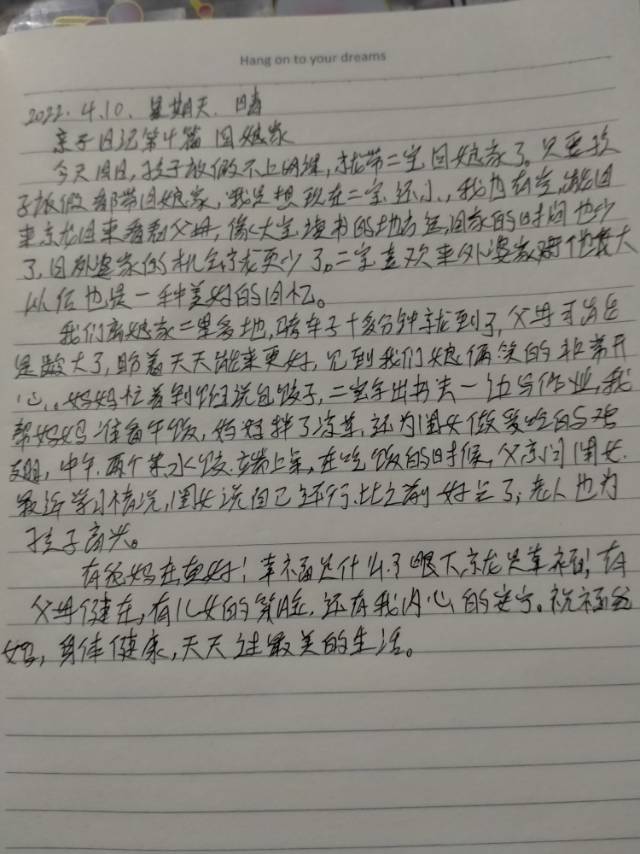 Hang on to your dreams
2022.4.10. 星期天. 晴
亲子日记第4篇 回娘家
今天周日,孩子放假不上网课,就带二宝回娘家了。只要孩
子放假都带回娘家,我是想现在二宝还小,我也有空,能回
来就回来看看父母,像大宝读书的地方远,回家的时间也少
了,回外婆家的机会就更少了。二宝喜欢来外婆家,等他长大
以后也是一种美好的回忆。
我们离娘家二里多地,骑车子十多分钟就到了,父母可能也
是岁数大了,盼着天天能来更好,见到我们娘俩笑的非常开
心,妈妈忙着剁馅说包饺子,二宝拿出书去一边写作业,我
帮妈妈准备午饭,妈妈拌了凉菜,还为闺女做爱吃的
中午,两个菜水饺.端上桌,在吃饭的时候,父亲问闺女
最近学习情况,闺女说自己还行.比之前好些了,老人也为
孩子高兴。
有爸妈在真好!幸福是什么?眼下,就是幸福!有
父母健在,有儿女的笑脸,还有我内心的安宁。祝福爸
妈,身体健康,天天过最美的生活。